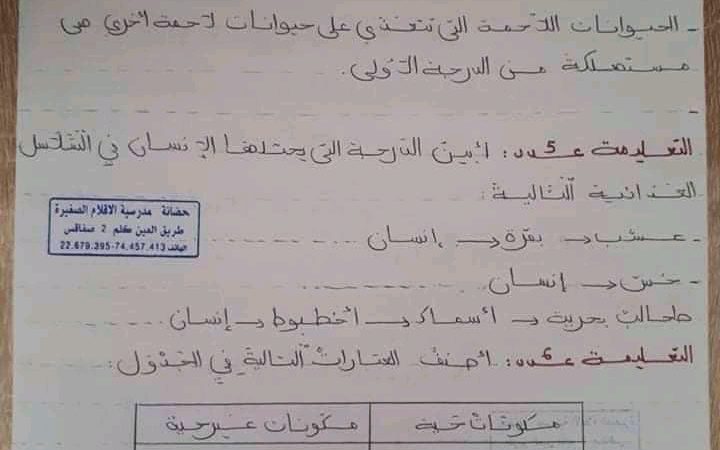 - الحيوانات اللاحمة التي تتغذى على حيوانات لاحمة أخرى هي
مستهلكة من الدرجة الأولى.
-
التعليمة عدد 5: أبين الدرجة التي يحتلها الإنسان في السلاسل
الغذائية التالية:
- عشب → بقرة → إنسان ............
- خس → إنسان ............
طحالب بحرية → أسماك → أخطبوط → إنسان ............
التعليمة عدد 6: أصنف العبارات التالية في الجدول:
مكونات حية
مكونات غير حية
حضانة مدرسية الاقلام الصغيرة
طريق العين كلم 2 صفاقس
الهاتف 74.457.413-22.679.395